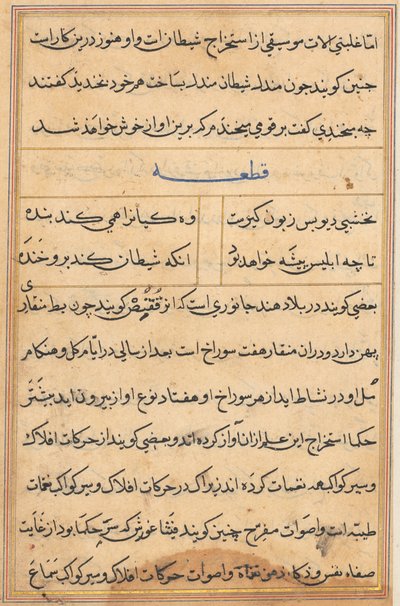 اما غلبتی الات موسیقی از استخراج شیطان است و او هنوز درین کار است
چنین کویند چون مندل شیطان مندل بساخت هرخود نخندید کفتند
چه سخندی کفت بر قومی میخندم که برین اواز خوش خواهد شد
قطعه
نخشبی دیو بس زبون کیریت
وه کیا نراهی کند بنده
تا چه ابلیس پیشه خواهد بود
انکه شیطان کند برو خنده
بعضی کویند در بلاد هند جانوری است که انرا ققنس کویند چون بط منقاری
پهن دارد و دران منقار هفت سوراخ است بعد از سالی در ایام کل و هنکام
مل او در نشاط اید از هر سوراخ او هفتاد نوع اواز بیرون اید بیشتر
حکما استخراج این علم ازان آواز کرده اند و بعضی کویند از حرکات افلاک
و سیر کواکب همه نغمات کرده اند زیراک در حرکات افلاک و سیر کواکب نغمات
طیبه است و اصوات مفرح چنین کویند فیثاغورش که سر حکما بود از غایت
صفاء نفس و ذکاء ذهن نغمات و اصوات حرکات افلاک و سیر کواکب سماع